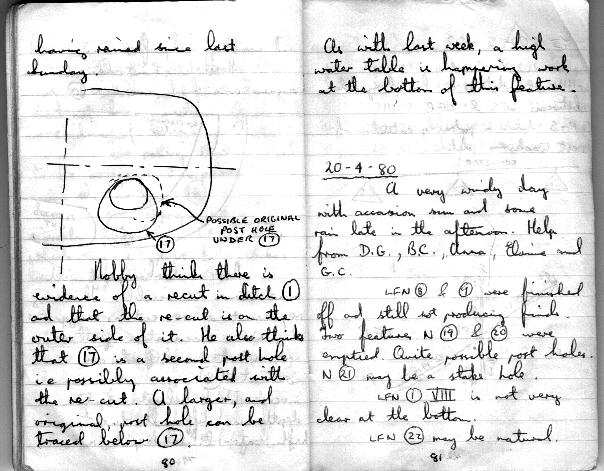 having rained since last
Sunday.
POSSIBLE ORIGINAL
POST HOLE
UNDER (17)
(17)
Nobby thinks there is
evidence of a recut in ditch (1)
ad that the re-cut is on the
outer side of it. He also thinks
that (17) is a second post hole
i.e possibly associated with
the re-cut. A larger, and
original, post hole can be
traced below (17).
80
As with last week, a high
water table is hampering work
at the bottom of this feature.
20-4-80
A very windy day
with occasion sun and some
rain late in the afternoon. Help
from D.G., BC., Anna, Elaine and
G.C.
LFN (8) & (9) were finished
off ad still not producing finds.
Two features N (19) & (20) were
emptied. Quite possible post holes.
N (21) may be a stake hole.
LFN (1) VIII is not very
clear at the bottom.
LFN (22) may be natural.
81